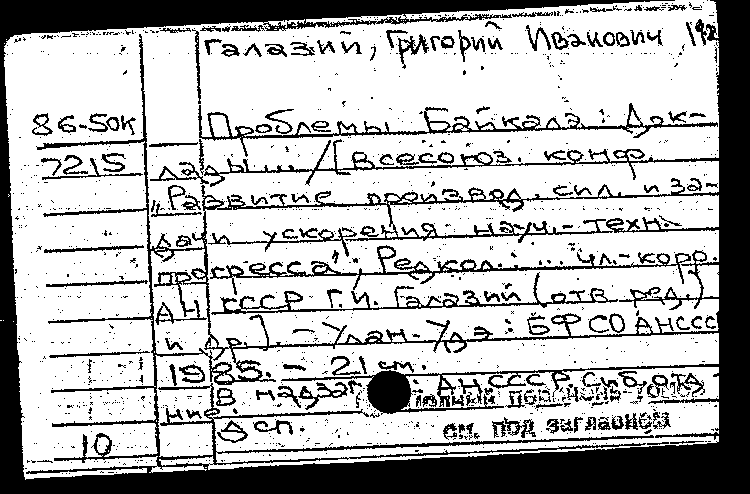 Галазий, Григорий Иванович 192
86-50к Проблемы Байкала: Док-
7215 лады ... / [Всесоюз. конф.
„Развитие производ. сил. и за-
дачи ускорения науч.-техн.
прогресса"; Редкол.: ... чл.-корр.
АН СССР Г.И. Галазий (отв. ред.)
и др.]. - Улан-Удэ: БФ СО АНССС
1985. - 21 см.
В надзаг.: АН СССР, Сиб. отд-
ние.
Полный перечень томов
Дсп.
см. под заглавием
10